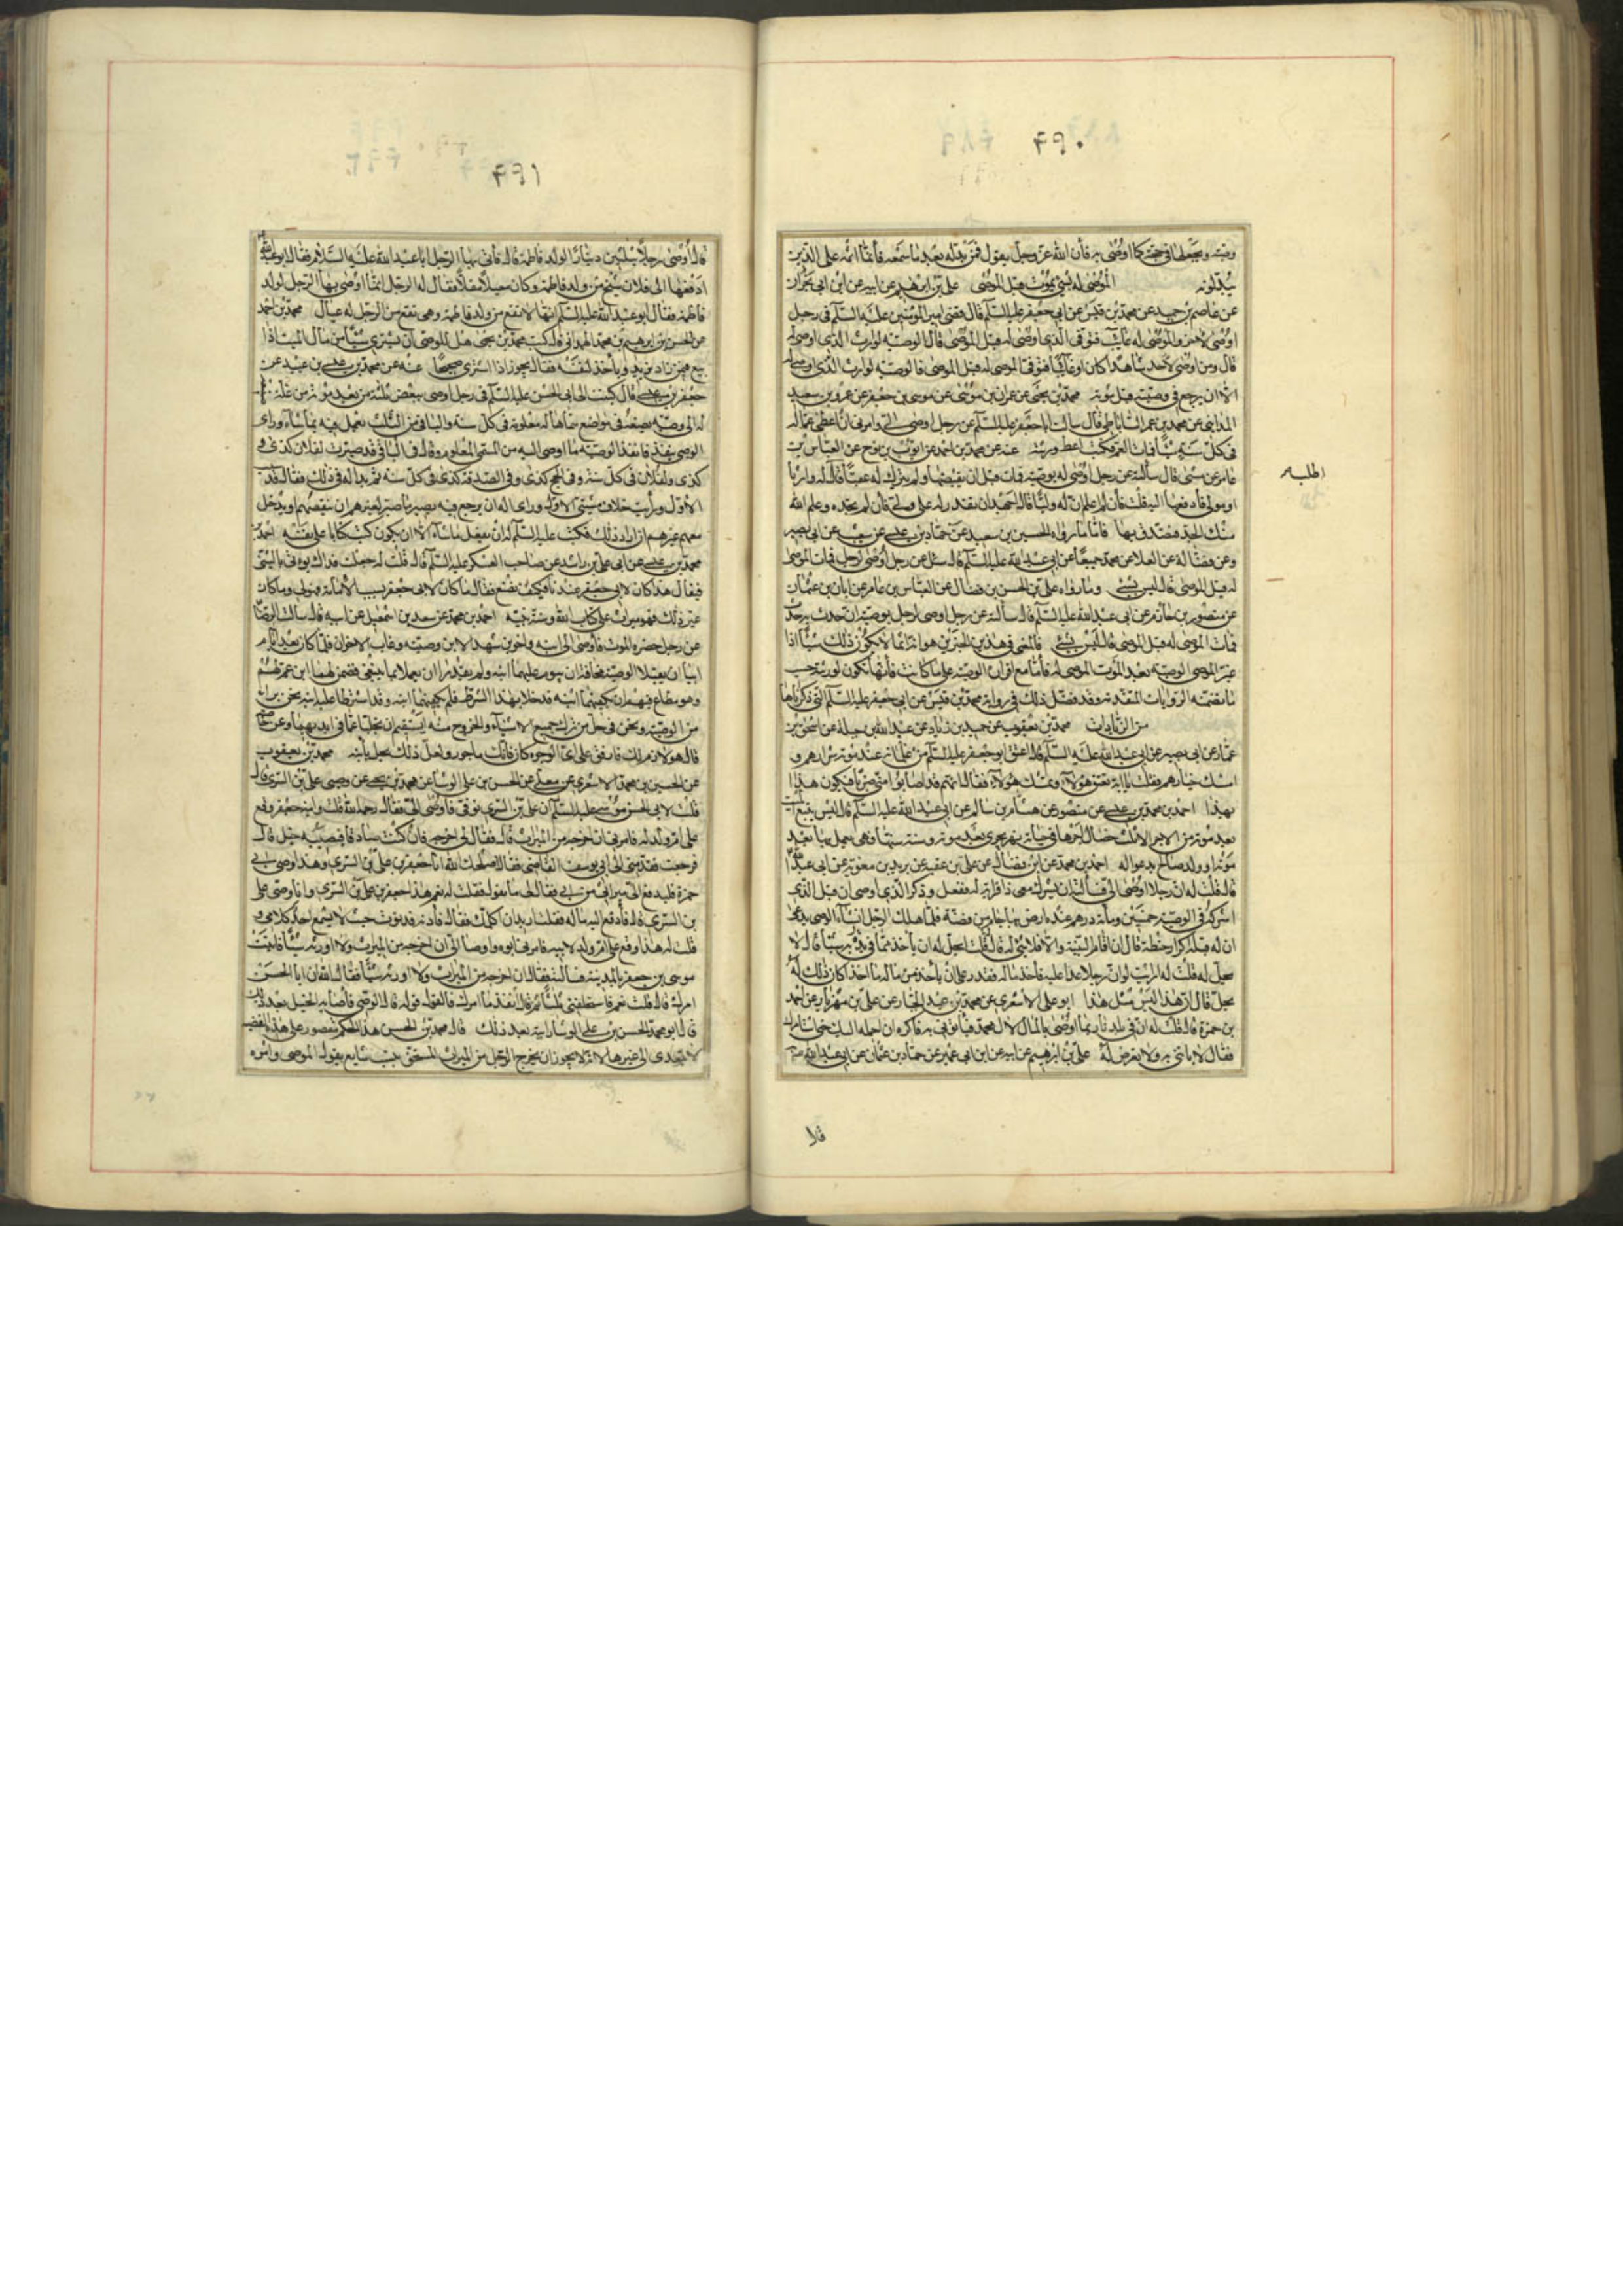 ۴۹۰
وصيته ويجعلها في حجة كما اوصى به فان الله عز وجل يقول فمن بدله بعد ما سمعه فانما اثمه على الذين
يبدلونه الموصى له بشيء يموت قبل الموصي علي بن ابرهيم عن ابيه عن ابن ابي نجران
عن عاصم بن حميد عن محمد بن قيس عن ابي جعفر عليه السلم قال قضى امير المؤمنين عليه السلم في رجل
اوصى لاخر والموصى له غايب فتوفي الذي اوصى له قبل الموصي قال الوصية لوارث الذي اوصى له
قال ومن اوصى لاحد شاهدا كان او غايبا فتوفي الموصى له قبل الموصي فالوصية لوارث الذي اوصى له
الا ان يرجع في وصيته قبل موته محمد بن يحيى عن عمران بن موسى عن موسى بن جعفر عن عمرو بن سعيد
المدايني عن محمد بن عمر الساباطي قال سالت ابا جعفر عليه السلم عن رجل اوصى الي وامرني ان اعطي عما له
في كل سنة شيئا فمات العم فكتب اعط ورثته عنه عن محمد بن احمد عن ايوب بن نوح عن العباس بن
عامر عن مثنى قال سالته عن رجل اوصى له بوصية فمات قبل ان يقبضها ولم يترك له عقبا قال اطلب له وارثا
او مولى فادفعها اليه قلت فان لم اعلم له وليا قال اجهد ان تقدر له على ولي فان لم تجده وعلم الله
منك الجد فتصدق بها فاما ما رواه الحسين بن سعيد عن حماد بن عيسى عن شعيب عن ابي بصير
وعن فضالة عن العلا عن محمد جميعا عن ابي عبد الله عليه السلم قال سئل عن رجل اوصى لرجل فمات الموصى
له قبل الموصي قال ليس بشيء وما رواه علي بن الحسن بن فضال عن العباس بن عامر عن ابان بن عثمان
عن منصور بن حازم عن ابي عبد الله عليه السلم قال سالته عن رجل اوصى لرجل بوصية ان حدث به حدث
فمات الموصى له قبل الموصي قال ليس بشيء فالمعنى في هذين الخبرين هو انه انما لا يكون ذلك شيئا اذا
غير الموصي الوصية بعد الموت الموصى له فاما مع اقرار الوصية على ما كانت فانها تكون لورثته حسب
ما تضمنته الروايات المتقدمة وقد فصل ذلك في رواية محمد بن قيس عن ابي جعفر عليه السلم التي ذكرناها
من الزيادات محمد بن يعقوب عن حميد بن زياد عن عبد الله بن جبلة عن اسحق بن
عمار عن ابي بصير عن ابي عبد الله عليه السلم قال اعتق ابو جعفر عليه السلم من غلمانه عند موته شرارهم و
امسك خيارهم فقلت يا ابه تعتق هؤلاء وتمسك هؤلاء فقال انهم قد اصابوا مني ضربا فيكون هذا
بهذا احمد بن محمد بن عيسى عن منصور عن هشام بن سالم عن ابي عبد الله عليه السلم قال ليس يتبع الميت
بعد موته من الاجر الا ثلث خصال
موته او ولد صالح يدعو له احمد بن محمد عن ابن فضال عن علي بن عقبة عن بريد بن معوية عن ابي عبد الله
قال قلت له ان رجلا اوصى الي فسالته ان يشرك معي ذا قرابة له ففعل وذكر الذي اوصى ان قبل الذي
اشركه في الوصية خمسين وماية درهم عنده رهن بها جام من فضة فلما هلك الرجل انشا الوصي يدعي
ان له قبله اكرار حنطة قال ان اقام البينة والا فلا شيء له قال قلت ايحل له ان ياخذ مما في يديه شيئا قال لا
يحل له قلت ارايت لو ان رجلا عدا عليه فاخذ ماله فقدر على ان ياخذ من ماله ما اخذ اكان ذلك له
يحل قال ان هذا ليس مثل هذا ابو علي الاشعري عن محمد بن عبد الجبار عن علي بن مهزيار عن احمد
بن حمزة قال قلت له ان في بلدنا ربما اوصي بالمال لال محمد فياتوني به فاكره ان احمله اليك حتى استامرك
فقال لا تاتني به ولا تعرض له علي بن ابرهيم عن ابيه عن ابن ابي عمير عن حماد بن عثمان عن ابي عبد الله
اطلب له
قال
۴۹۱
قال اوصى رجل بثلثين دينارا لولد فاطمة قال فاتى بها الرجل ابا عبد الله عليه السلام فقال ابو عبد الله
ادفعها الى فلان شيخ من ولد فاطمة وكان معيلا مقلا فقال له الرجل انما اوصى بها الرجل لولد
فاطمة فقال ابو عبد الله عليه السلم انها لا تقع من ولد فاطمة وهي تقع من الرجل له عيال محمد بن احمد
عن الحسن بن ابرهيم بن محمد الهمداني قال كتب محمد بن يحيى هل للوصي ان يشتري شيئا من مال الميت اذا
بيع فيمن زاد فيزيد وياخذ لنفسه فقال يجوز اذا اشترى صحيحا عنه عن محمد بن عيسى بن عبيد عن
جعفر بن عيسى قال كتبت الى ابي الحسن عليه السلم في رجل اوصى ببعض ثلثه من بعد موته من غلة
له الى وصيه يضعه في مواضع سماها له معلومة في كل سنة والباقي من الثلث يعمل فيه بما شاء وراى
الوصي فانفذ الوصي ما اوصي اليه من المسمى المعلوم وقال في الباقي قد صيرت لفلان كذى و
كذى ولفلان في كل سنة وفي الحج كذى وفي الصدقة كذى في كل سنة ثم بدا له في ذلك فقال قد
الاول ورايت خلاف مشيتي الاولى ورايي اله ان يرجع فيه يصير ما صير لغيرهم او ينقصهم او يدخل
معهم غيرهم ان اراد ذلك فكتب عليه السلم له ان يفعل ما شاء الا ان يكون كتب كتابا على نفسه احمد بن
محمد بن عيسى عن ابي علي بن راشد عن صاحب العسكر عليه السلم قال قلت له جعلت فداك يوتى بالشيء
فيقال هذا كان لابي جعفر عندنا فكيف نصنع فقال ما كان لابي جعفر بسبب الامامة فهو لي وما كان
غير ذلك فهو ميراث على كتاب الله وسنة نبيه احمد بن محمد عن سعد بن اسمعيل عن ابيه قال سالت الرضا
عن رجل حضره الموت فاوصى الى ابنه واخوين شهد الابن وصيته وغاب الاخوان فلما كان بعد ايام
ابيا ان يقبلا الوصية مخافة ان يتوثب عليهما ابنه ولم يقدرا ان يعملا بما ينبغي فضمن لهما ابن عم لهم
وهو مطاع فيهم ان يكفيهما ابنه فدخلا بهذا الشرط فلم يكفهما ابنه وقد اشترطا عليه ابنه نحن براء
من الوصية ونحن في حل من ترك جميع الاشياء والخروج منه ايستقيم ان يخليا عما في ايديهما
قال هو لازم لك فارفق على اي الوجوه كان فانك ماجور ولعل ذلك يحل بابنه محمد بن يعقوب
عن الحسين بن محمد الاشعري عن معلى عن الحسن بن علي الوشا عن محمد بن يحيى عن وصي علي بن السري قال
قلت لابي الحسن موسى عليه السلم ان علي بن السري توفي فاوصى الي فقال رحمه الله قلت وان ابنه جعفر وقع
على ام ولد له فامرني ان اخرجه من الميراث قال فقال لي اخرجه فان كنت صادقا فيصيبه خبل قال
فرجعت فقدمني الى ابي يوسف القاضي فقال اصلحك الله انا جعفر بن علي بن السري وهذا وصي ابي
فمره فليدفع الي ميراثي من ابي فقال لي ما تقول فقلت له نعم هذا جعفر بن علي بن السري وانا وصي علي
بن السري قال فادفع اليه ماله فقلت اريد ان اكلمك فقال فادنه فدنوت حيث لا يسمع احد كلامي و
قلت له هذا وقع على ام ولد لابيه فامرني ابوه واوصى الي ان اخرجه من الميراث ولا اورثه شيئا فاتيت
موسى بن جعفر بالمدينة فسالته فقال ان اخرجه من الميراث ولا اورثه شيئا فقال الله ان ابا الحسن
امرك قال قلت نعم فاستحلفني ثلثا ثم قال انفذ ما امرك فالقول قوله قال الوصي فاصابه الخبل بعد ذلك
قال ابو محمد الحسن بن علي الوشا رايته بعد ذلك قال محمد بن الحسن هذا الحكم مقصور على هذه القضية
لا يتعدى الى غيرها لانه لا يجوز ان يخرج الرجل من الميراث المستحق بنسب شايع بقول الموصي وامره